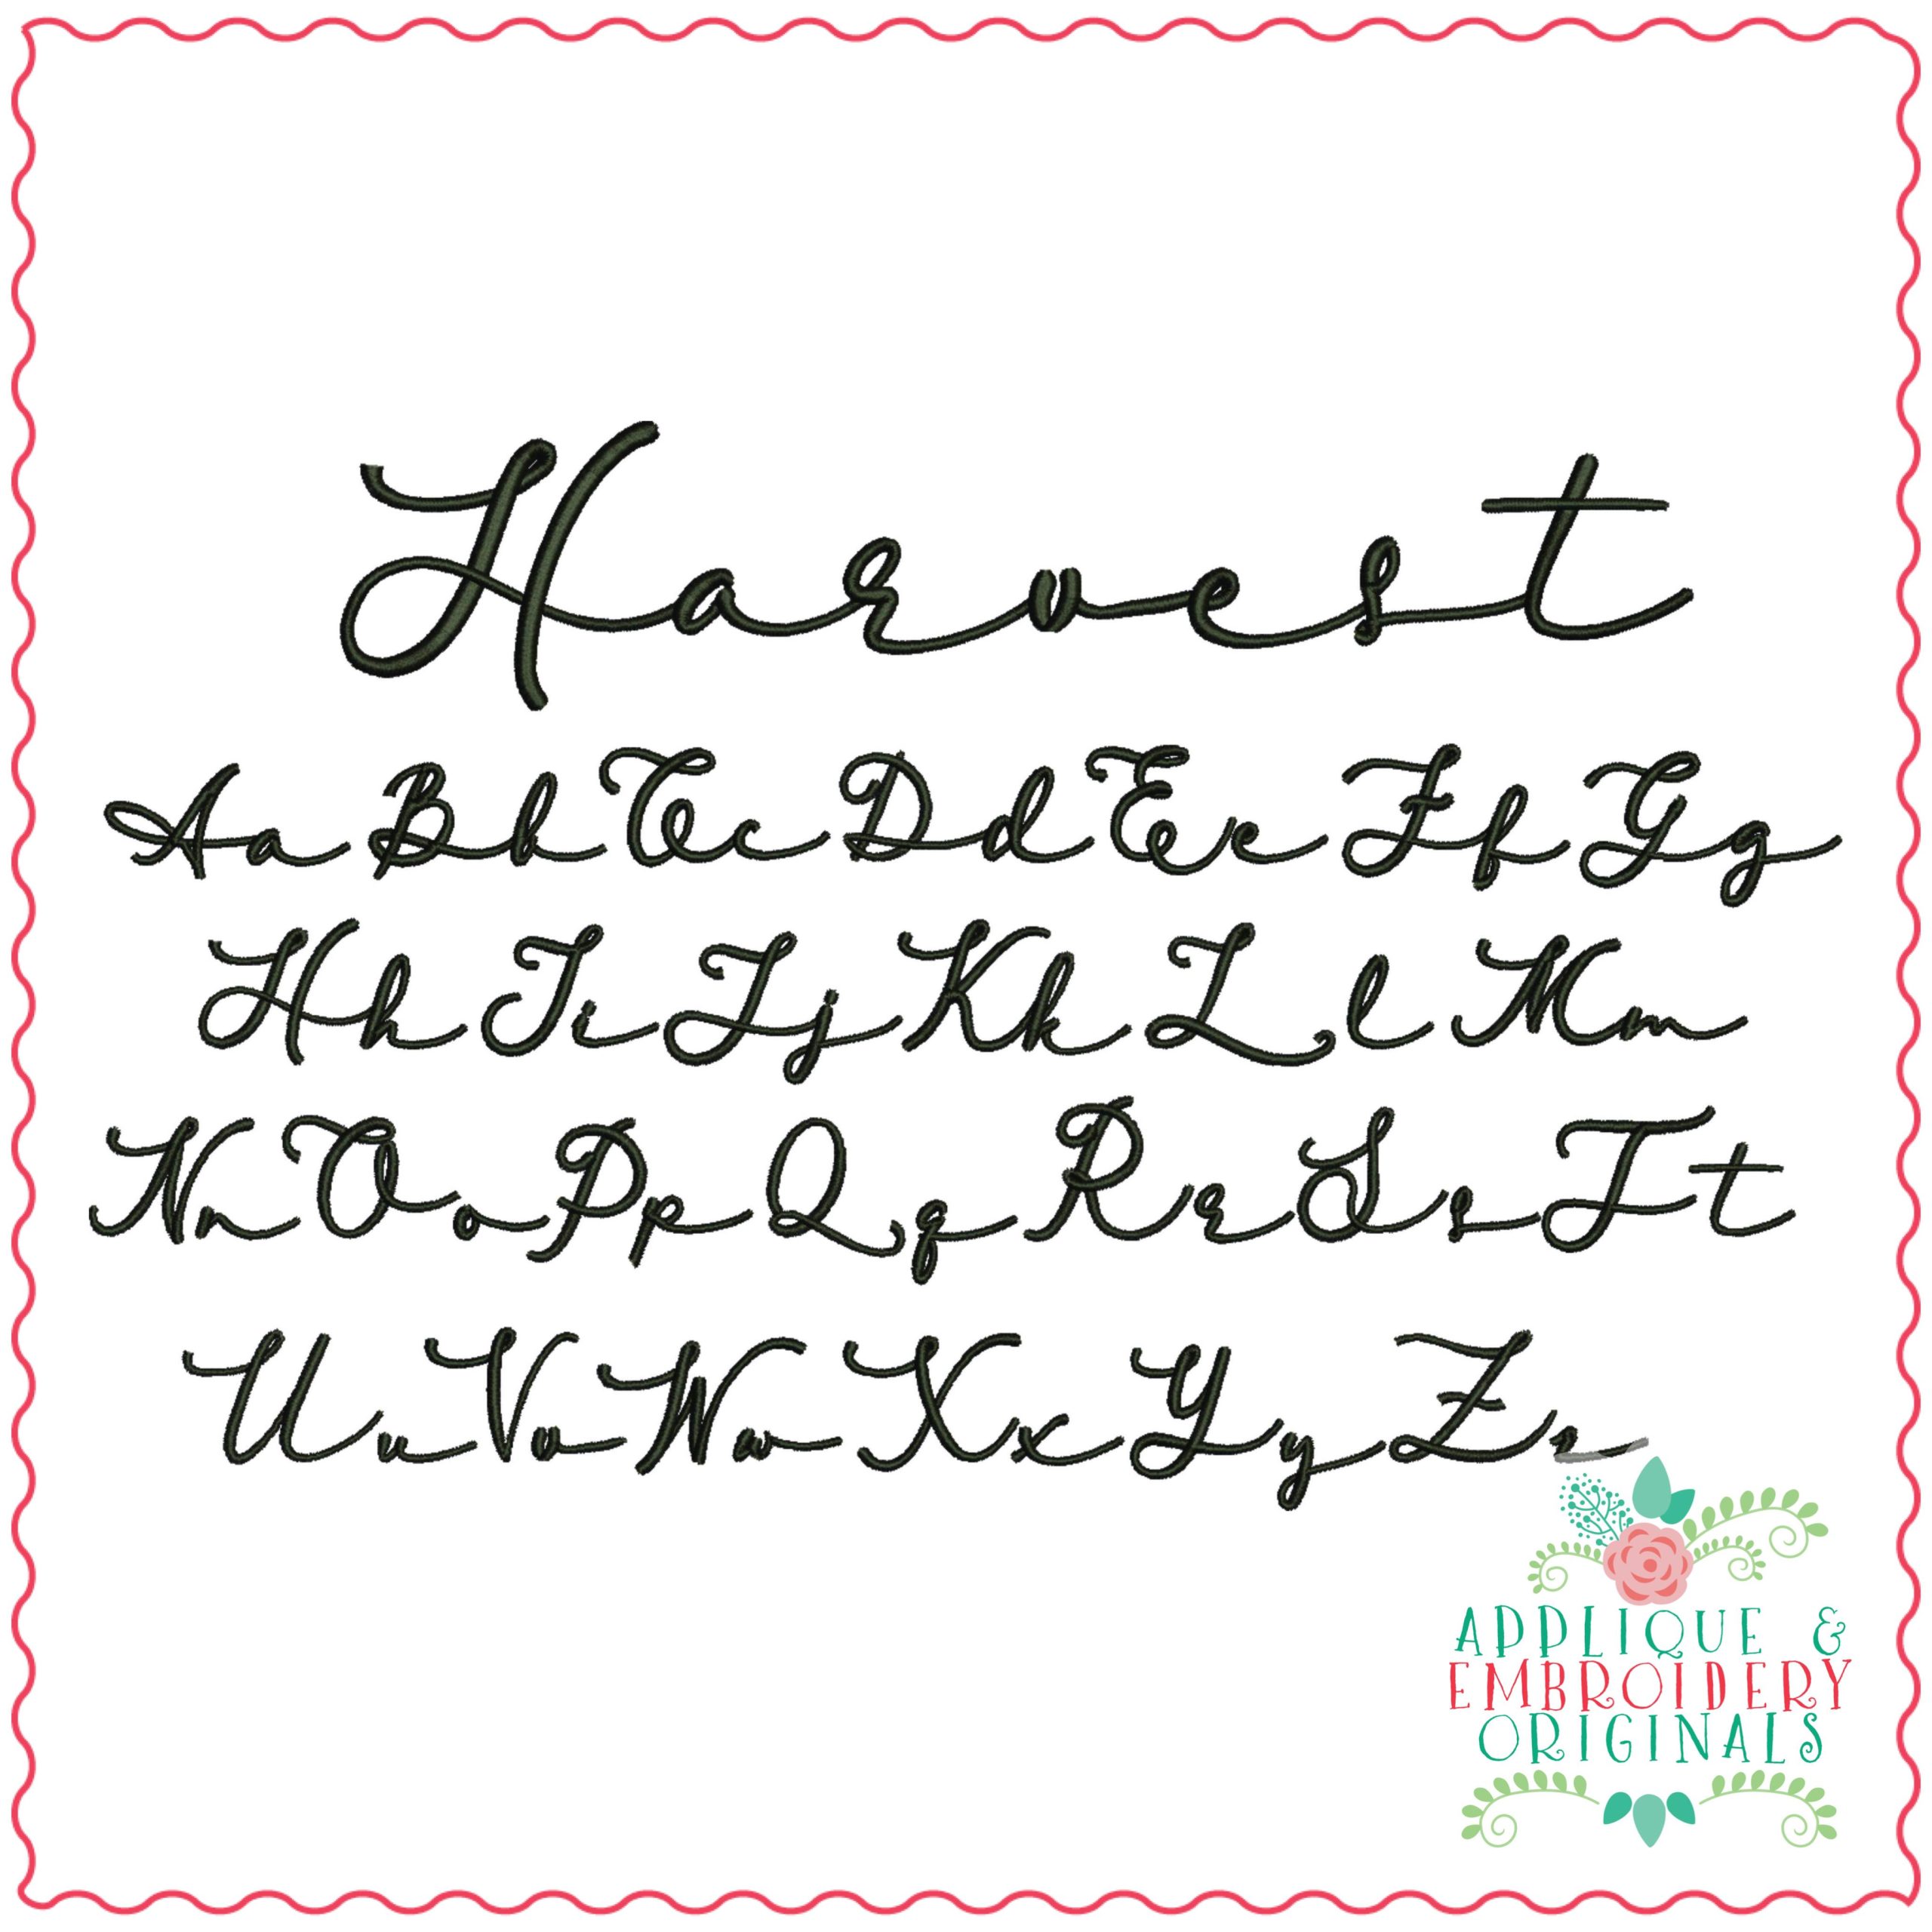 Harvest
Aa Bb Cc Dd Ee Ff Gg
Hh Ii Jj Kk Ll Mm
Nn Oo Pp Qq Rr Ss Tt
Uu Vv Ww Xx Yy Zz
APPLIQUE &
EMBROIDERY
ORIGINALS